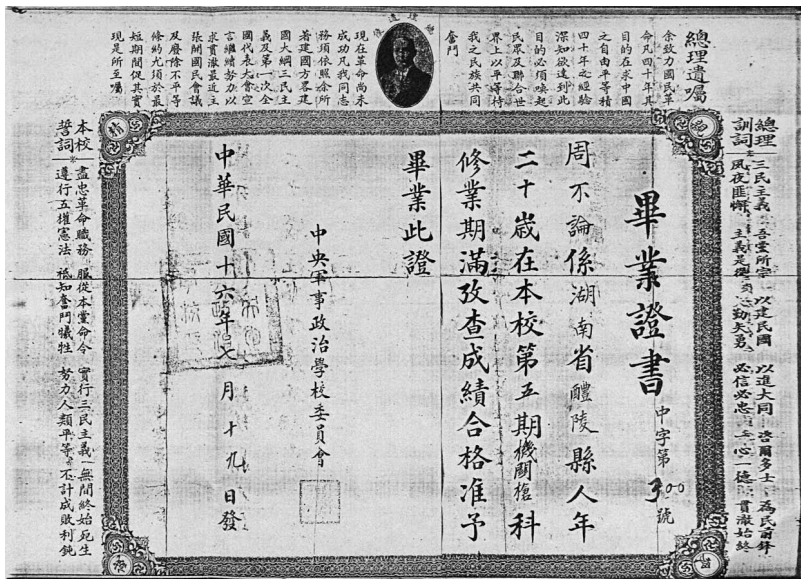 總理遺囑
余致力國民革
命凡四十年其
目的在求中國
之自由平等積
四十年之經驗
深知欲達到此
目的必須喚起
民眾及聯合世
界上以平等待
我之民族共同
奮鬥
總理遺像
現在革命尚未
成功凡我同志
務須依照余所
著建國方畧建
國大綱三民主
義及第一次全
國代表大會宣
言繼續努力以
求貫澈最近主
張開國民會議
及廢除不平等
條約尤須於最
短期間促其實
現是所至囑
總理訓詞
三民主義 吾黨所宗 以建民國 以進大同 咨爾多士 為民前鋒
夙夜匪懈 主義是從 矢勤矢勇 必信必忠 一心一德 貫澈始終
畢業證書
中字第300號
周不論係湖南省醴陵縣人年
二十歲在本校第五期機關槍科
修業期滿攷查成績合格准予
畢業此證
中央軍事政治學校委員會
中華民國十六年七月十九日發
本校誓詞
盡忠革命職務 服從本黨命令 實行三民主義 無間終始死生
遵行五權憲法 祗知奮鬥犧牲 努力人類平等 不計成敗利鈍